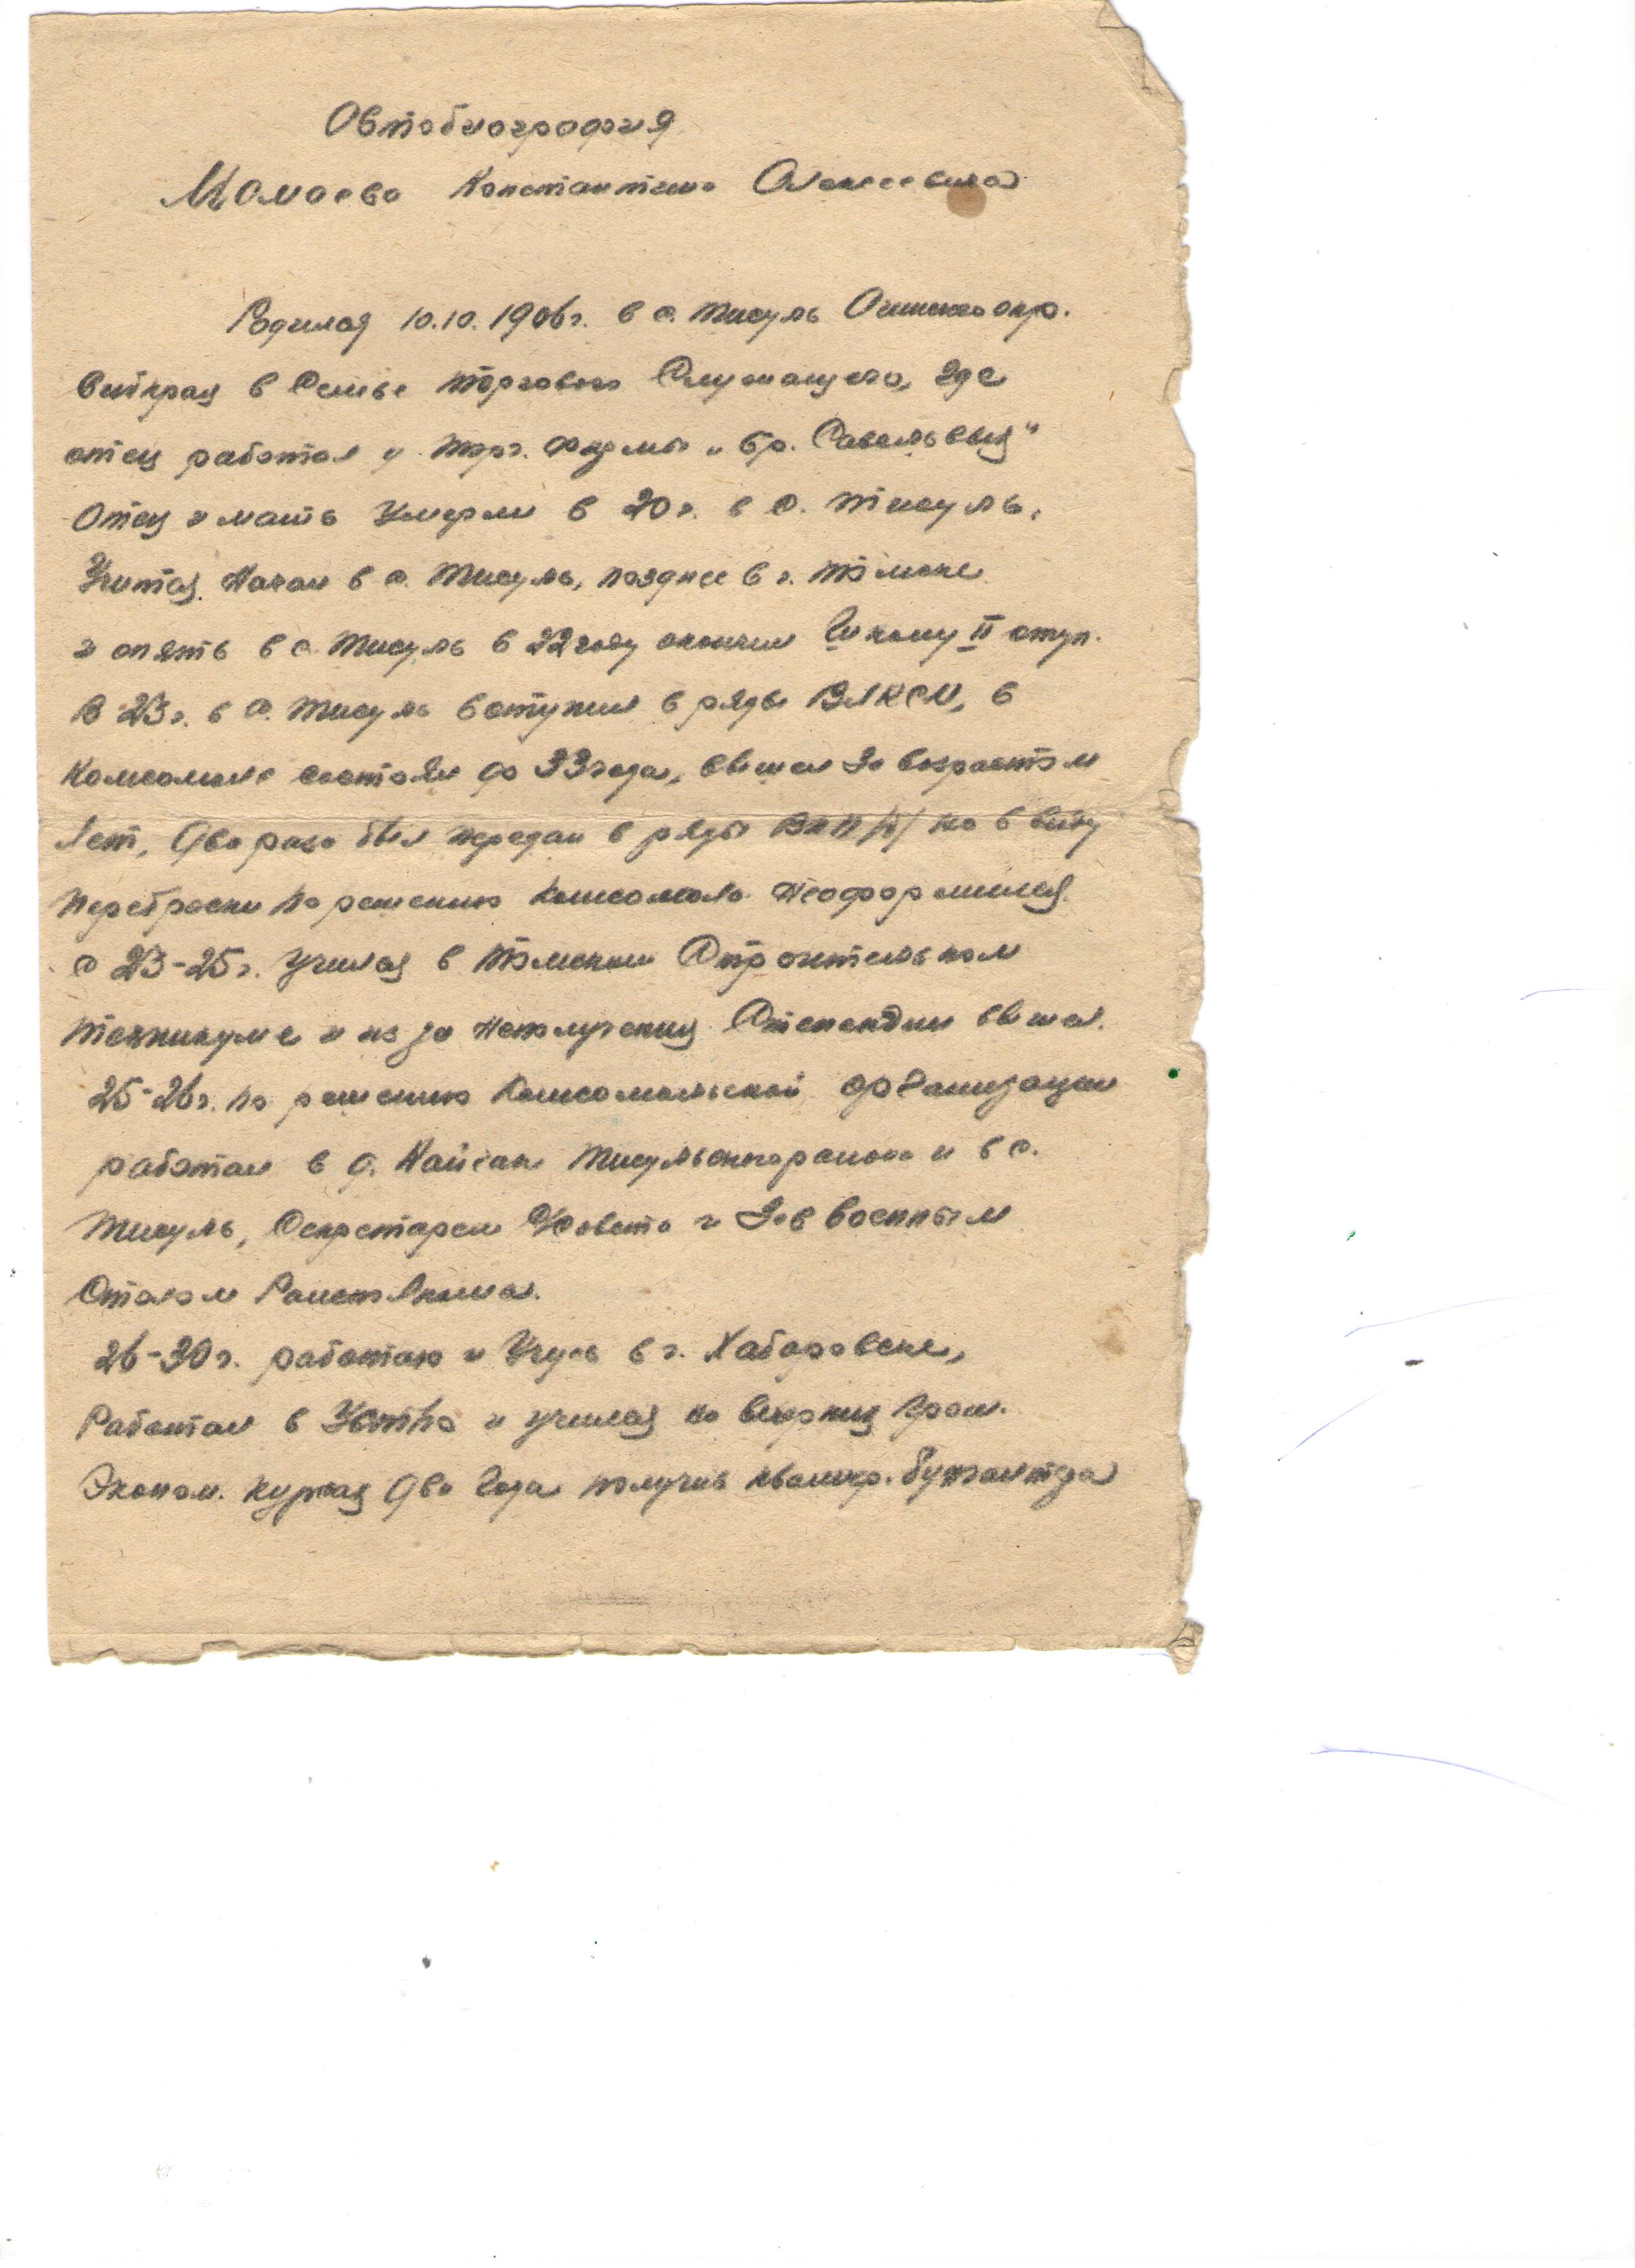 Автобиография
Мамаева Константина Алексеевича
Родился 10.10.1906г. в с. Тисуль Ачинского окр.
Сибкрая в Семье торгового Служащего, где
отец работал у торг. Фирмы „бр. Савельевых"
Отец и мать Умерли в 20г. в с. Тисуль.
Учится Начал в с. Тисуль, позднее в г. Томске
и опять в с. Тисуль в 22 году окончил Школу II ступ.
В 23г. в с. Тисуль вступил в ряды ВЛКСМ, в
Комсомоле состоял до 33 года, вышел За возрастом
Лет, Два раза был передан в ряды ВКП/б/ но в виду
переброски по решению Комсомола Неоформился
с 23-25г. Учился в Томском Строительном
техникуме и из за Неполучения Стипендии вышел.
25-26г. по решению Комсомольской организации
работал в д. Тисульского района и в с.
Тисуль, Секретарем С/совета и Зав военным
Столом Райисполкома.
26-30г. работаю и Учусь в г. Хабаровске,
Работал в и учился на вечерних
Эконом. курсах Два Года получив квалиф. бухгалтера